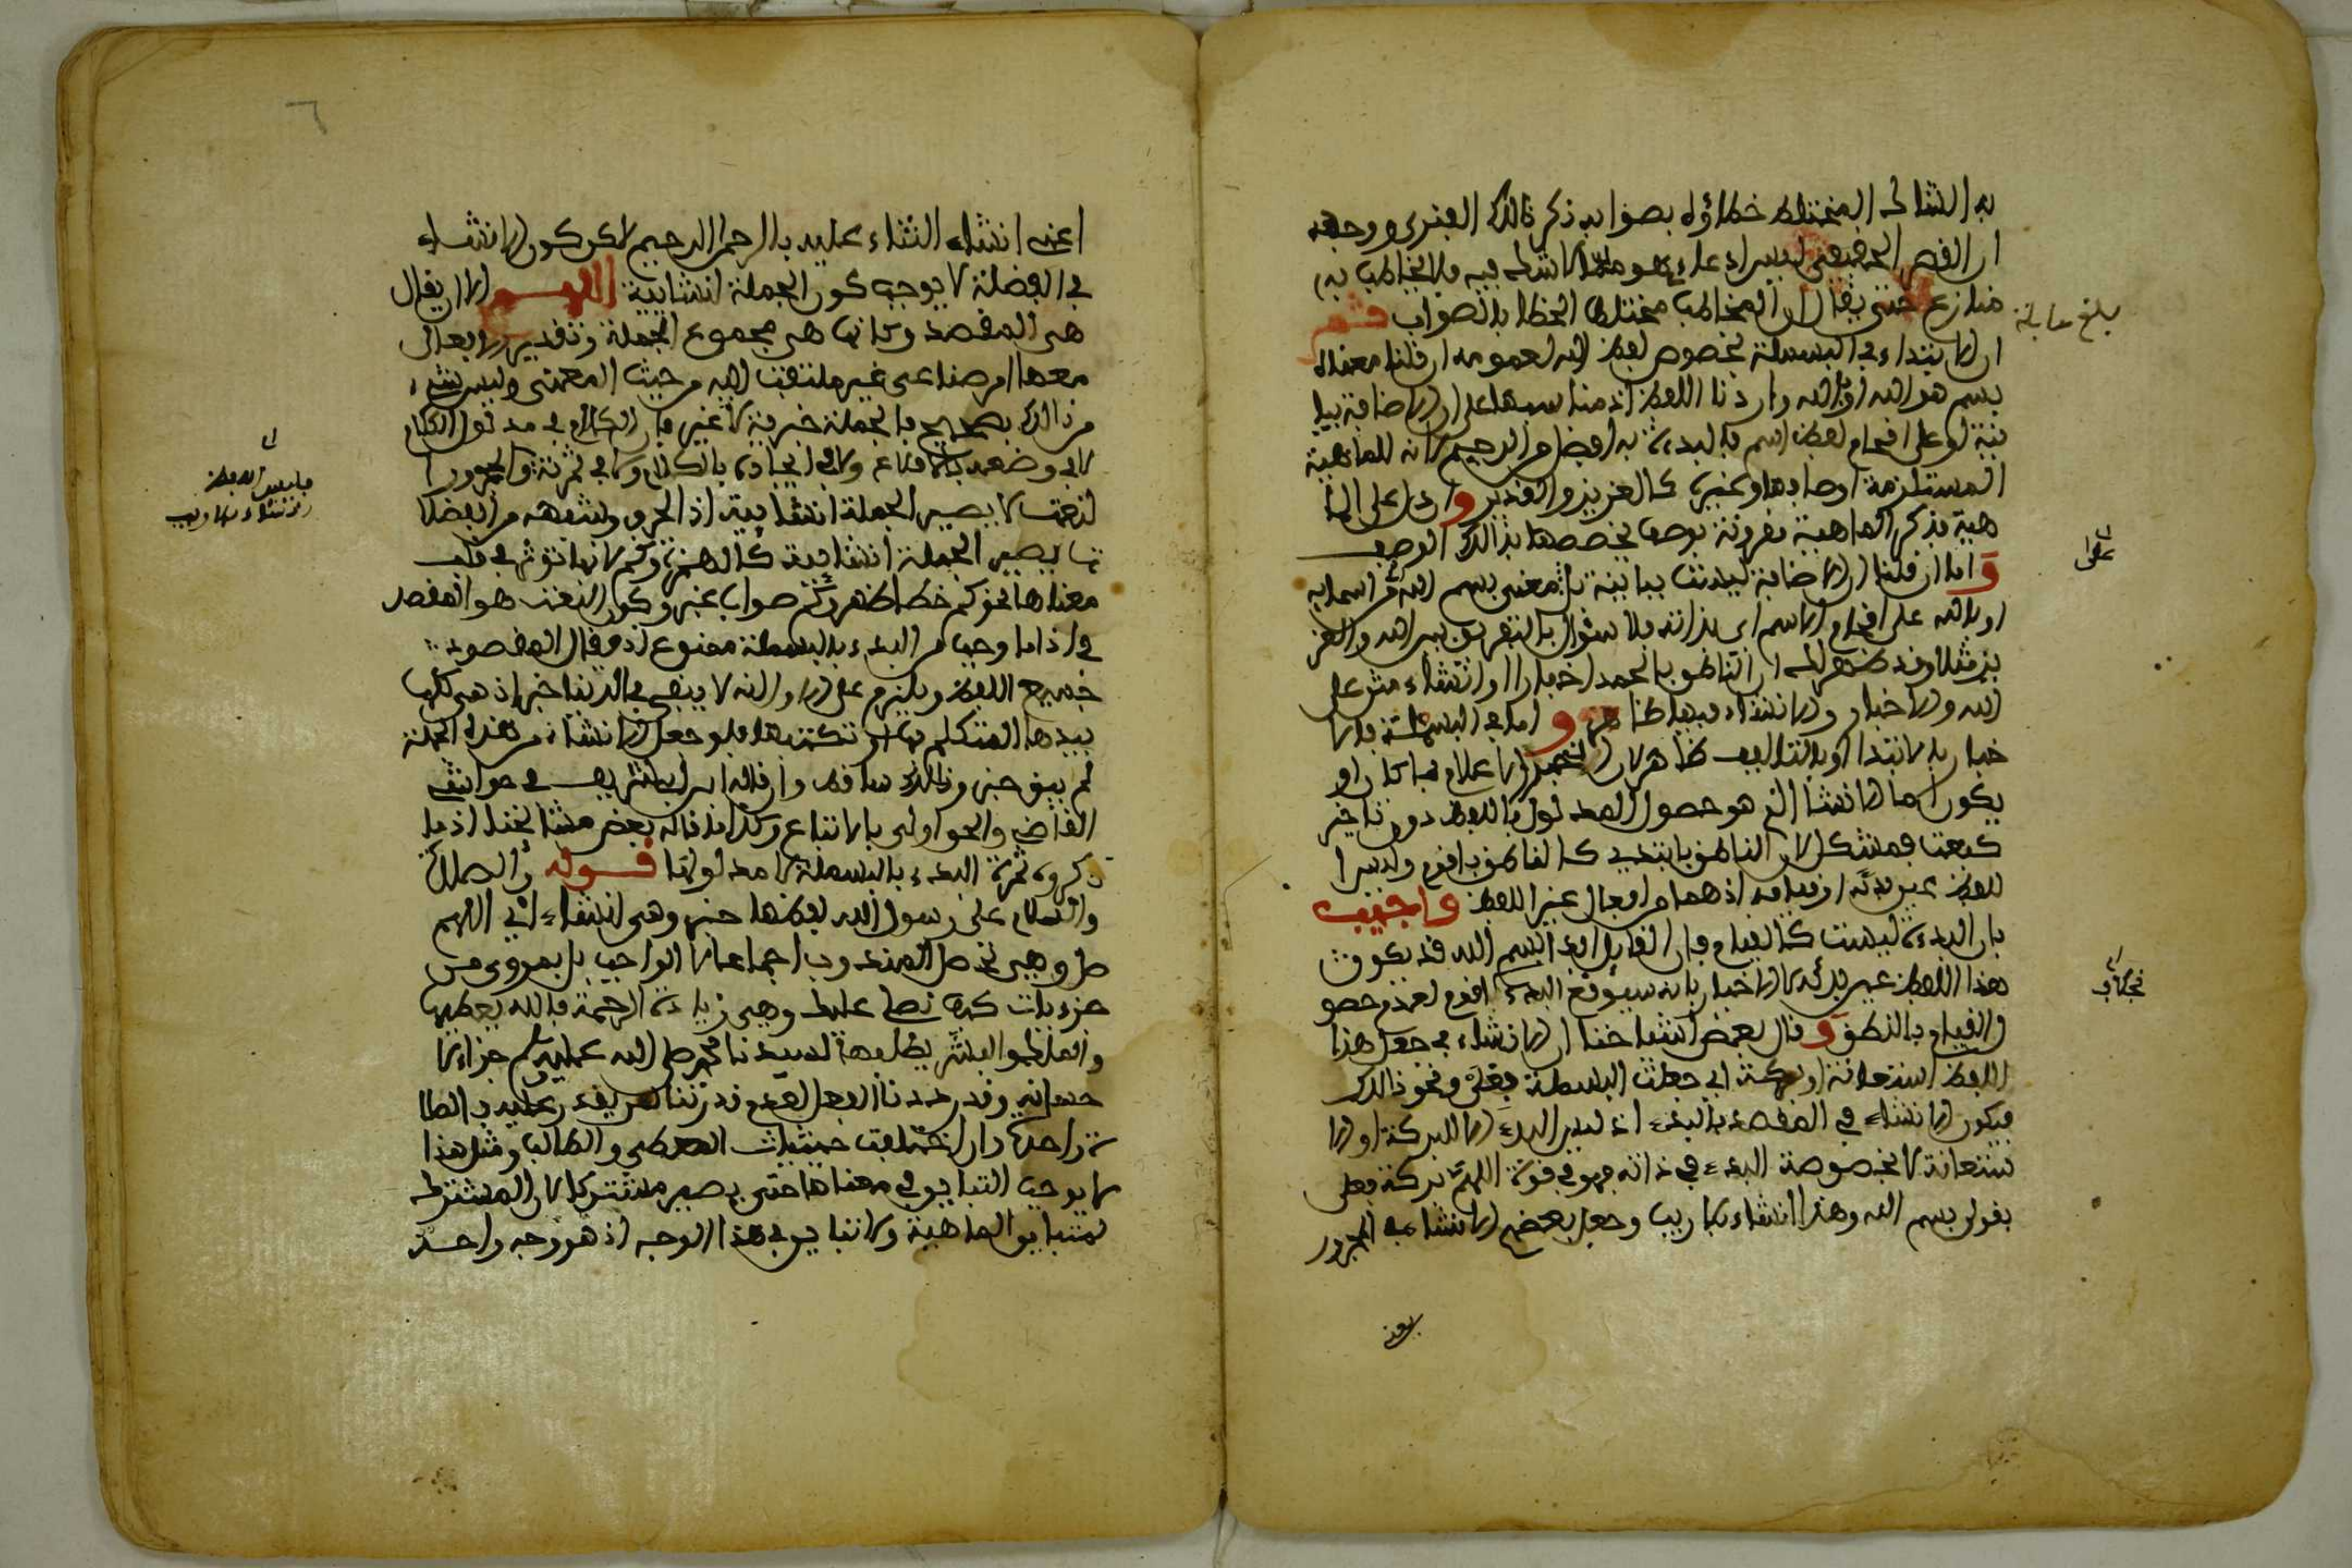 به الشاك المختلط خطاؤه بصوابه ذكر ذالك الفنري ووجهه
ان القصر الحقيقي ليس ادعاء هو مما لا اشتراك فيه فلا يخاطب به
منازع حتى يقال ان المخاطب مختلط الخطا بالصواب ثم
ان الابتداء في البسملة بخصوص لفظ الله لعمومه ان قلنا معناه
بسم هو الله او بالله واردنا اللفظ اذ مناسبها على ان الاضافة بيا
نية او على اقحام لفظ اسم فالبدء به افضل من الرحيم لانه للماهية
المستلزمة اوصافها وغيره كالعزيز والقدير وان دل على الما
هية بذكر الماهية مقرونة بوصف يخصصها بذالك الوصف
واما ان قلنا ان الاضافة ليست بيانية بل معنى بسم الله من اسمايه
او بالله على اقحام الاسم اي بذاته فلا سؤال بالتفريق بين الله والعز
يز مثلا وقد ظهر لك ان الناطق بالحمد اخبارا او انشاء مثن على
الله والاخبار والانشاء فيها ظاهر واما في البسملة فالا
خبار بالابتدا او بالتاليف ظاهر لان الخبر الاعلام بما كان او
يكون اما الانشا الذي هو حصول المدلول باللفظ دون تاخير
كبعت فمشكل لان الناطق بابتدي كالناطق باقوم وليس ا
للفظ عين بدئه او قيامه اذهما من افعال غير اللفظ واجيب
بان البدءة ليست كالقيام فان القايل ابدا بسم الله قد يكون
هذا اللفظ عين بدئه لا الاخبار بانه سيوقع البدء كاقوم لعدم حصو
ل القيام بالنطق وقال بعض اشياخنا ان الانشاء في جعل هذا
اللفظ استعانة او بركة اي جعلت البسملة بركة فعلي ونحو ذالك
فيكون الانشاء في المقصد بالبدء اذ ليس البدء الا للبركة او الا
ستعانة لا بخصوصة البدء في ذاته فهو في قوة اللهم بركة فعلي
بقول بسم الله وهذا انشاء بلا ريب وجعل بعضهم الانشا في المجرور
بلغ مقابلة
اعني انشاء الثناء عليه بالرحمن الرحيم لاكن كون الانشاء
في الفضلة لا يوجب كون الجملة انشايية اللهم الا ان يقال
هي المقصد وكانها هي مجموع الجملة وتقدير الافعال
معها امر صناعي غير ملتفت اليه من حيث المعنى وليس شيء
من ذالك بصحيح فالجملة خبرية لا غير فان الكلام في مدلول الكلام
لا في وضعه بالاقناع ولا في ايجاده بالكلام ولا في ثمرته والمجرور ا
لنعت لا يصير الجملة انشايية اذ الحرف وشبهه من الفضلا
ت يصير الجملة انشايية كالهمزة وكم لانها توثر في قلب
معناها نحو كم خطا ظهر وكم صواب غبر وكون النعت هو المقصد
في اذا ما وجب من البدء بالبسملة ممنوع اذ يقال المقصود
جميع اللفظ ويلزم على الاول انه لا يبقى في الدنيا خبر اذ هي كلها
يبدها المتكلم فلو جعل الانشاء من هذه الجملة
لم يبق خبر وذالك ساقط وان قاله ابن ابي شريف في حواشي
القاضي والحق اولى بالاتباع وكذا ما قاله بعض مشايخنا اذ ما
ذكروه ثمرة البدء بالبسملة لا مدلولها قوله والصلاة
والسلام على رسول الله لفظها خبر وهي انشاء اي اللهم
صل وهي تحصل المندوب اجماعا لا الواجب بل بعروي من
جزءيات كما نص عليه وهي زيادة الرحمة فالله يعطيها
والملك والبشر يطلبها لسيدنا محمد صلى الله عليه وسلم جزاء لا
حسانه وقد رددنا الفعل لعدم قدرتنا لمن يقدر عليه والصلا
ة واحدة وان اختلفت حيثيات المعطي والطالب ومثل هذا
لا يوجب التباين في معناها حتى يصير مشتركا لان المشترك
متباين الماهية ولا تباين في هذا الوجه اذ هو وجه واحد